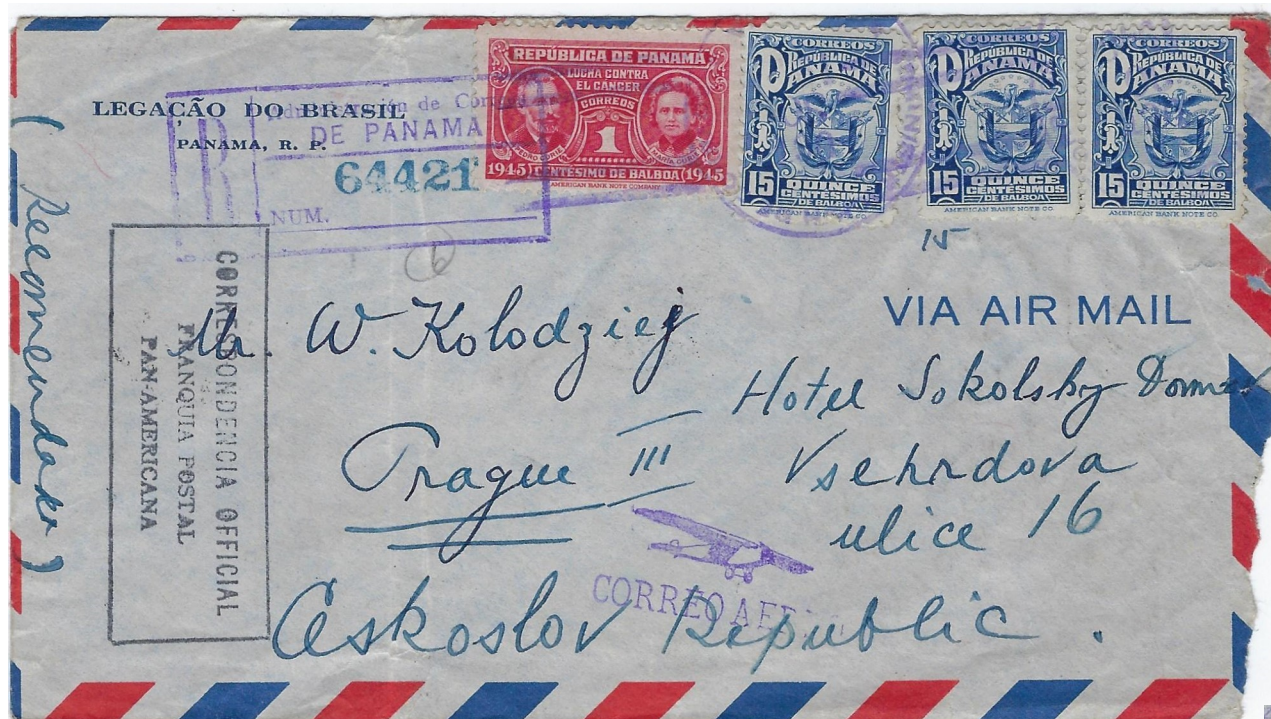 LEGAÇÃO DO BRASIL
PANAMA, R. P.
de Correos
DE PANAMA
R
64421
NUM.
REPÚBLICA DE PANAMÁ
LUCHA CONTRA
EL CANCER
CORREOS
1
PEDRO CURIE
MARIA CURIE
1945 CENTÉSIMO DE BALBOA 1945
AMERICAN BANK NOTE COMPANY
CORREOS
REPÚBLICA DE
PANAMA
15 QUINCE
CENTÉSIMOS
DE BALBOA
AMERICAN BANK NOTE CO.
CORREOS
REPÚBLICA DE
PANAMA
15 QUINCE
CENTÉSIMOS
DE BALBOA
AMERICAN BANK NOTE CO.
CORREOS
REPÚBLICA DE
PANAMA
15 QUINCE
CENTÉSIMOS
DE BALBOA
AMERICAN BANK NOTE CO.
15
6
(Recomendado)
CORRESPONDENCIA OFFICIAL
FRANQUIA POSTAL
PAN-AMERICANA
VIA AIR MAIL
Mr. W. Kolodziej
Hotel Sokolsky Domev
Prague III
Vsehrdova
ulice 16
CORREO AEREO
Českoslov Republic.